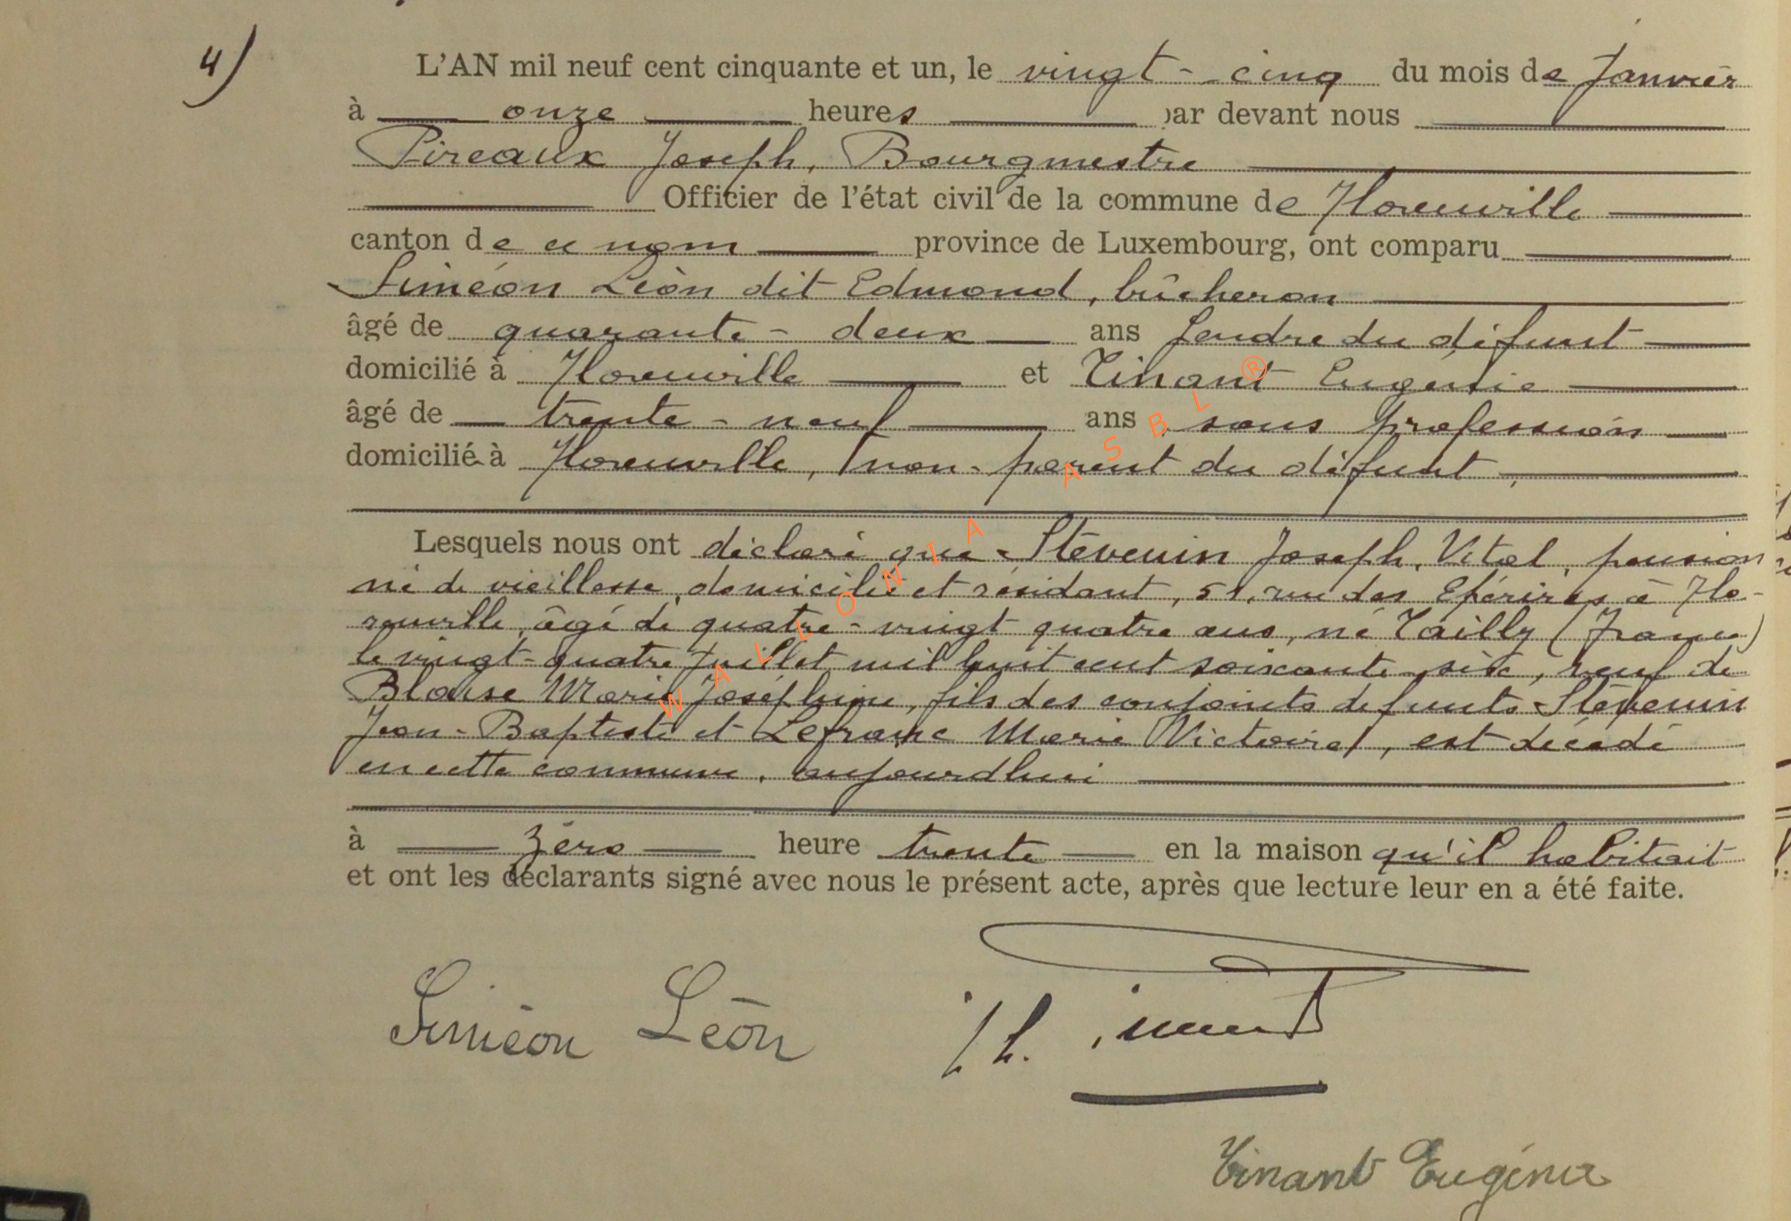 4)
L'AN mil neuf cent cinquante et un, le vingt-cinq du mois de Janvier
à onze heures par devant nous
Pireaux Joseph, Bourgmestre
Officier de l'état civil de la commune de Florenville
canton de ce nom province de Luxembourg, ont comparu
Siméon Léon dit Edmond, bûcheron
âgé de quarante-deux ans Gendre du défunt
domicilié à Florenville et Tinant Eugénie
âgé de trente-neuf ans sans profession
domicilié à Florenville, non-parent du défunt
Lesquels nous ont déclaré que Stévenin Joseph, Vital, pension
né de vieillesse, domicilié et résidant, 51, rue des Epérires à Flo-
renville, âgé de quatre-vingt quatre ans, né Tailly (France)
le vingt-quatre Juillet mil huit cent soixante-six, veuf de
Blaise Marie Joséphine, fils des conjoints défunts Stévenin
Jean-Baptiste et Lefranc Marie Victoire, est décédé
en cette commune, aujourdhui
à zéro heure trente en la maison qu'il habitait
et ont les déclarants signé avec nous le présent acte, après que lecture leur en a été faite.
Siméon Léon
Tinant Eugénie
WALLONIA ASBL ®